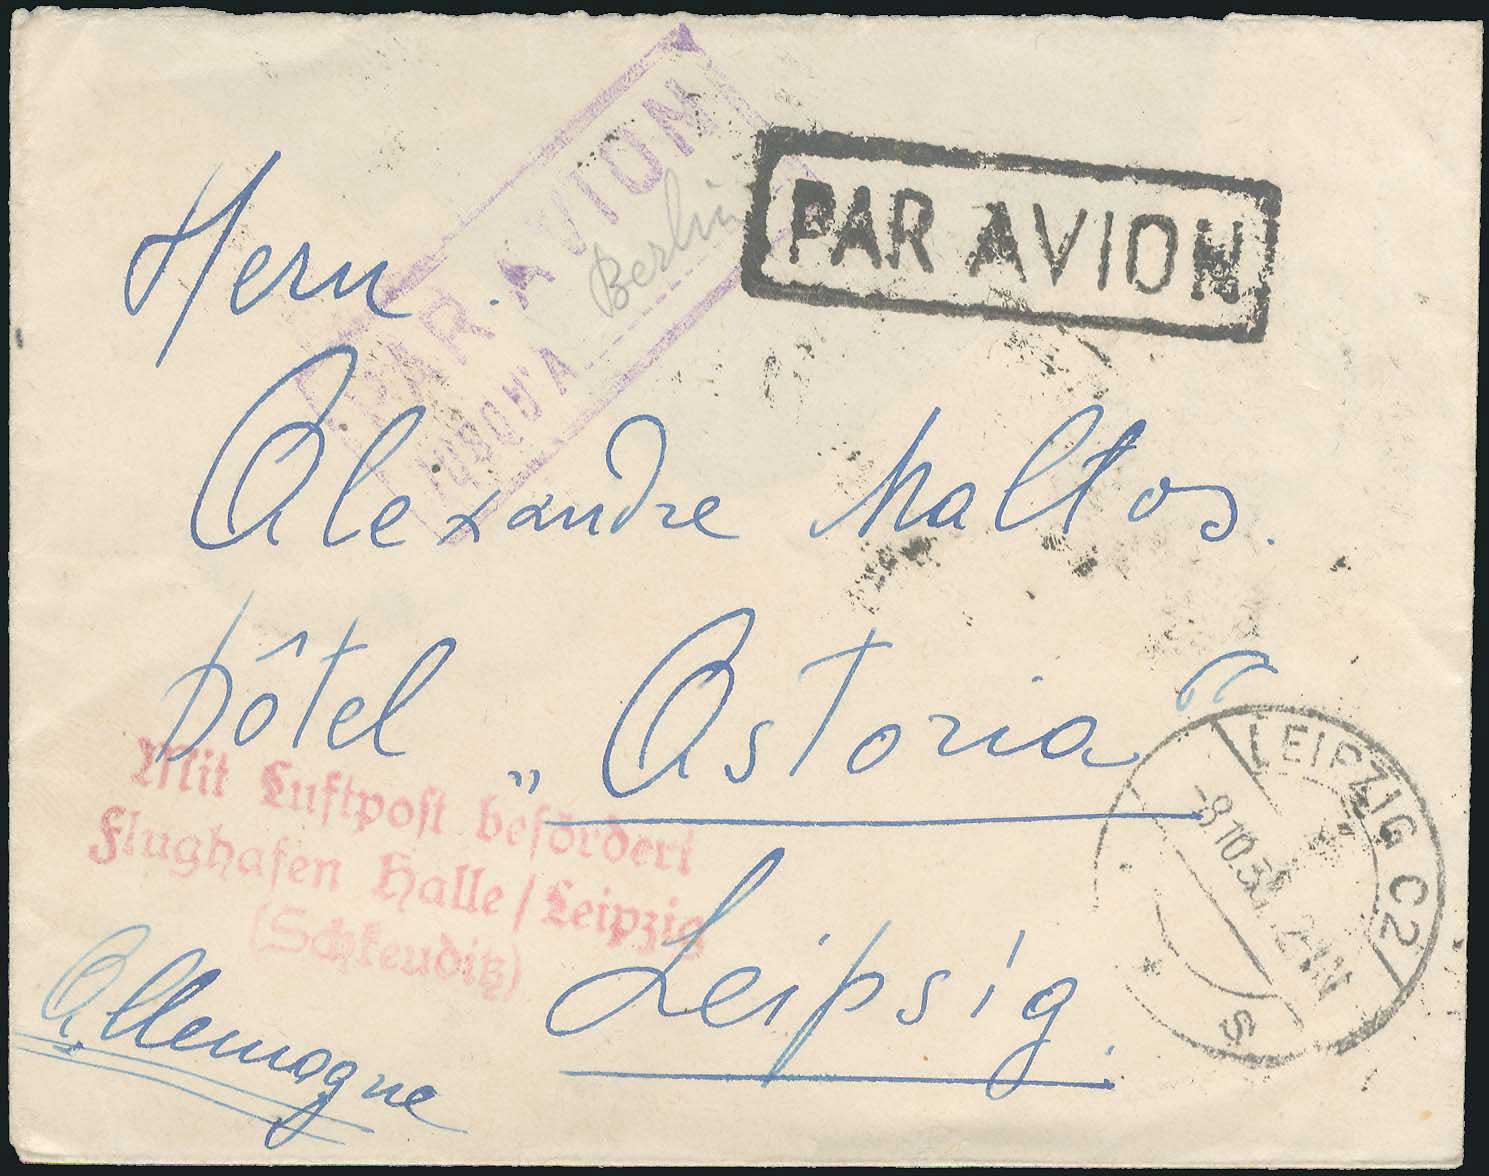 PAR AVION
JUSQU'A Berlin
PAR AVION
Herrn.
Alexandre Maltos.
Hôtel
„Astoria“
Mit Luftpost befördert
Flughafen Halle/Leipzig
(Schkeuditz)
Leipsig.
Allemagne
LEIPZIG C2
-8.10.35.
S